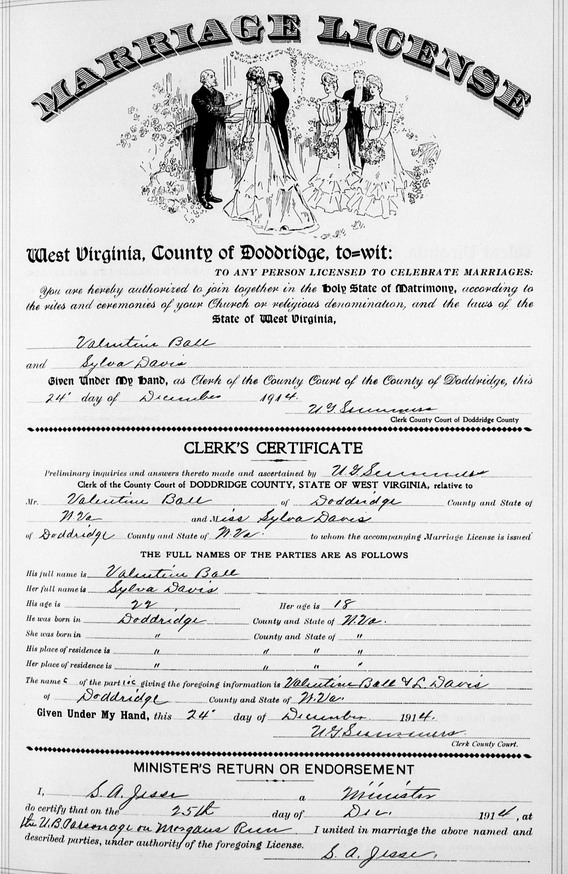 MARRIAGE LICENSE
West Virginia, County of Doddridge, to=wit:
TO ANY PERSON LICENSED TO CELEBRATE MARRIAGES:
You are hereby authorized to join together in the Holy State of Matrimony, according to
the rites and ceremonies of your Church or religious denomination, and the laws of the
State of West Virginia,
Valentine Ball
and Sylva Davis
Given Under My Hand, as Clerk of the County Court of the County of Doddridge, this
24" day of December 1914.
U G Summers
Clerk County Court of Doddridge County
CLERK'S CERTIFICATE
Preliminary inquiries and answers thereto made and ascertained by U. G Summers
Clerk of the County Court of DODDRIDGE COUNTY, STATE OF WEST VIRGINIA, relative to
Mr. Valentine Ball of Doddridge County and State of
W.Va and Miss Sylva Davis
of Doddridge County and State of W.Va. to whom the accompanying Marriage License is issued
THE FULL NAMES OF THE PARTIES ARE AS FOLLOWS
His full name is Valentine Ball
Her full name is Sylva Davis
His age is 22 Her age is 18
He was born in Doddridge County and State of W.Va.
She was born in " County and State of "
His place of residence is " " " "
Her place of residence is " " " "
The names of the parties giving the foregoing information is Valentine Ball & L. Davis
of Doddridge County and State of W.Va.
Given Under My Hand, this 24" day of December 1914.
U G Summers
Clerk County Court.
MINISTER'S RETURN OR ENDORSEMENT
I, S. A. Jesse a Minister
do certify that on the 25th day of Dec. 1914, at
the U.B. Parsonage on Morgans Run I united in marriage the above named and
described parties, under authority of the foregoing License.
S. A. Jesse.